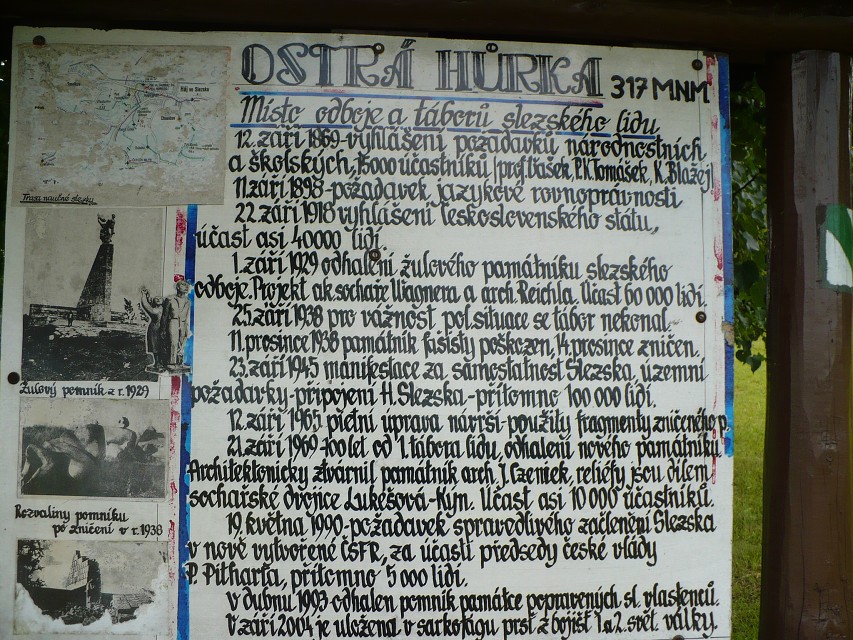 OSTRÁ HŮRKA 317 MNM
Místo odboje a táborů slezského lidu
12. září 1869-vyhlášení požadavků národnostních
a školských, 15000 účastníků (prof. Vašek, P.K. Tomášek, K. Blažej)
11. září 1898-požadavek jazykové rovnoprávnosti
22. září 1918 vyhlášení československého státu,
účast asi 40000 lidí.
1. září 1929 odhalení žulového památníku slezského
odboje. Projekt ak. sochaře Wagnera a arch. Reichla. Účast 60 000 lidí.
25. září 1938 pro vážnost pol. situace se tábor nekonal.-
11. prosince 1938 památník fašisty poškozen, 14. prosince zničen.
23. září 1945 manifestace za samostatnost Slezska, územní
požadavky-připojení H. Slezska-přítomno 100 000 lidí.
12. září 1965 pietní úprava návrší-použity fragmenty zničeného p.
21. září 1969-100 let od 1. tábora lidu, odhalení nového památníku.
Architektonicky ztvárnil památník arch. J. Czeniek, reliéfy jsou dílem
sochařské dvojice Lukešová-Kyn. Účast asi 10 000 účastníků.
19. května 1990-požadavek spravedlivého začlenění Slezska
v nově vytvořené ČSFR, za účasti předsedy české vlády
P. Pitharta, přítomno 5 000 lidí.
v dubnu 1993 odhalen pomník památce popravených sl. vlastenců.
V září 2004 je uložena v sarkofágu prst z bojišť 1. a 2. svět. války.
Trasa naučné stezky
Žulový pomník z r. 1929
Rozvaliny pomníku
po zničení v r. 1938